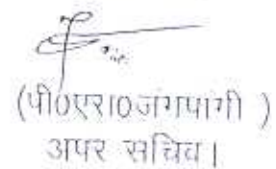 (पी०एस०जंगपांगी )
अपर सचिव।